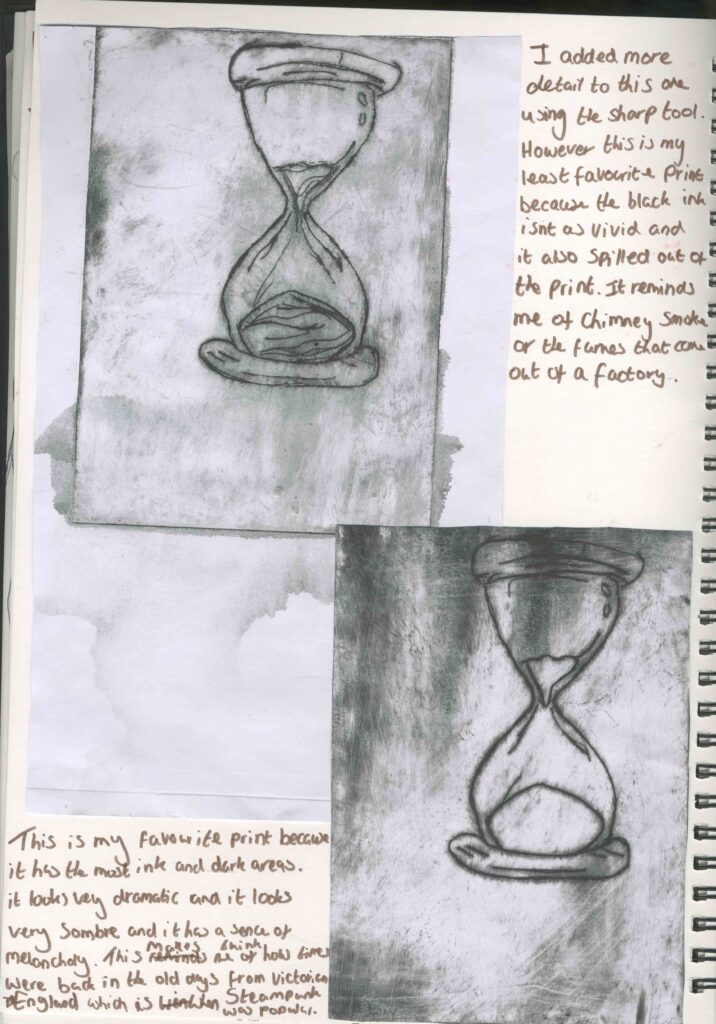 I added more
detail to this one
using the sharp tool.
However this is my
least favourite print
because the black ink
isnt as vivid and
it also spilled out of
the print. It reminds
me of Chimney Smoke
or the fumes that come
out of a factory.
This is my favourite print because
it has the most ink and dark areas.
it looks very dramatic and it looks
very sombre and it has a sence of
melancholy. This makes me think of how times
were back in the old days from Victorian
England which is when Steampunk
was popular.